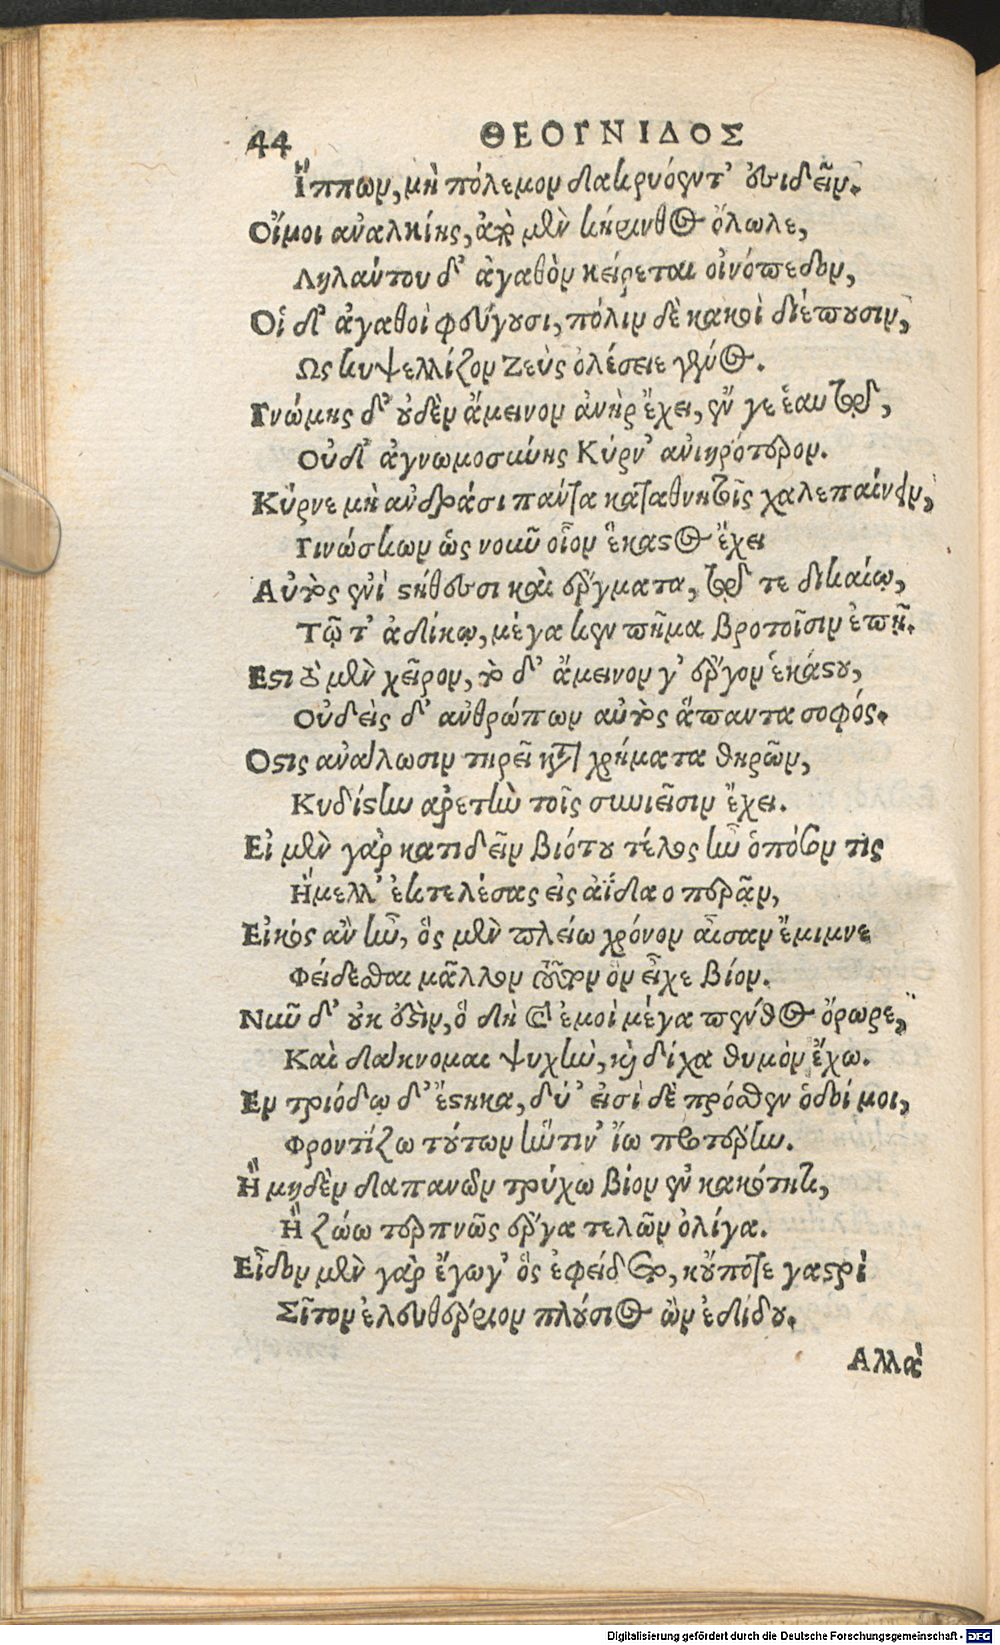 44 ΘΕΟΓΝΙΔΟΣ
Ἵππων, μὴ πόλεμον δακρυόεντ' ἐσιδεῖν.
Οἴμοι ἀναλκίης, ἀπὸ μὲν κήρινθος ὄλωλε,
Ληλάντου δ' ἀγαθὸν κείρεται οἰνόπεδον,
Οἱ δ' ἀγαθοὶ φεύγουσι, πόλιν δὲ κακοὶ διέπουσιν,
Ως κυψελλίζον Ζεὺς ὀλέσειε γένος.
Γνώμης δ' οὐδὲν ἄμεινον ἀνὴρ ἔχει, ἔν γε ἑαυτῷ,
Οὐδ' ἀγνωμοσύνης Κύρν' ἀνιηρότερον.
Κύρνε μὴ ἀνδράσι πάντα καταθνητοῖς χαλεπαίνειν,
Γινώσκων ὡς νοῦν οἷον ἕκαστος ἔχει
Αὐτὸς ἐνὶ στήθεσσι καὶ ἔργματα, τῷ τε δικαίῳ,
Τῷ τ' ἀδίκῳ, μέγα κεν πῆμα βροτοῖσιν ἐπῇ.
Εστι τὸ μὲν χεῖρον, τὸ δ' ἄμεινον γ' ἔργον ἑκάστου,
Οὐδεὶς δ' ἀνθρώπων αὐτὸς ἅπαντα σοφός.
Οστις ἀνάλωσιν τηρεῖ κατὰ χρήματα θηρῶν,
Κυδίστην ἀρετὴν τοῖς συνιεῖσιν ἔχει.
Εἰ μὲν γὰρ κατιδεῖν βιότου τέλος ἦν ὁπόσον τις
Ἤμελλ' ἐκτελέσας εἰς ἀΐδαο περᾷν,
Εἰκὸς ἂν ἦν, ὃς μὲν πλείω χρόνον αἶσαν ἔμιμνε
Φείδεσθαι μᾶλλον τοῦτον ὃν εἶχε βίον.
Νῦν δ' οὐκ ἔστιν, ὃ δὴ καὶ ἐμοὶ μέγα πένθος ὄρωρε,
Καὶ δάκνομαι ψυχὴν, καὶ δίχα θυμὸν ἔχω.
Εν τριόδῳ δ' ἕστηκα, δύ' εἰσὶ δὲ πρόσθεν ὁδοί μοι,
Φροντίζω τούτων ἥντιν' ἴω προτέρην.
Ἢ μηδὲν δαπανῶν τρύχω βίον ἐν κακότητι,
Ἢ ζώω τερπνῶς ἔργα τελῶν ὀλίγα.
Εἶδον μὲν γὰρ ἔγωγ' ὃς ἐφείδετο, κοὔποτε γαστρὶ
Σῖτον ἐλευθέριον πλούσιος ὢν ἐδίδου.
Αλλὰ
Digitalisierung gefördert durch die Deutsche Forschungsgemeinschaft - DFG